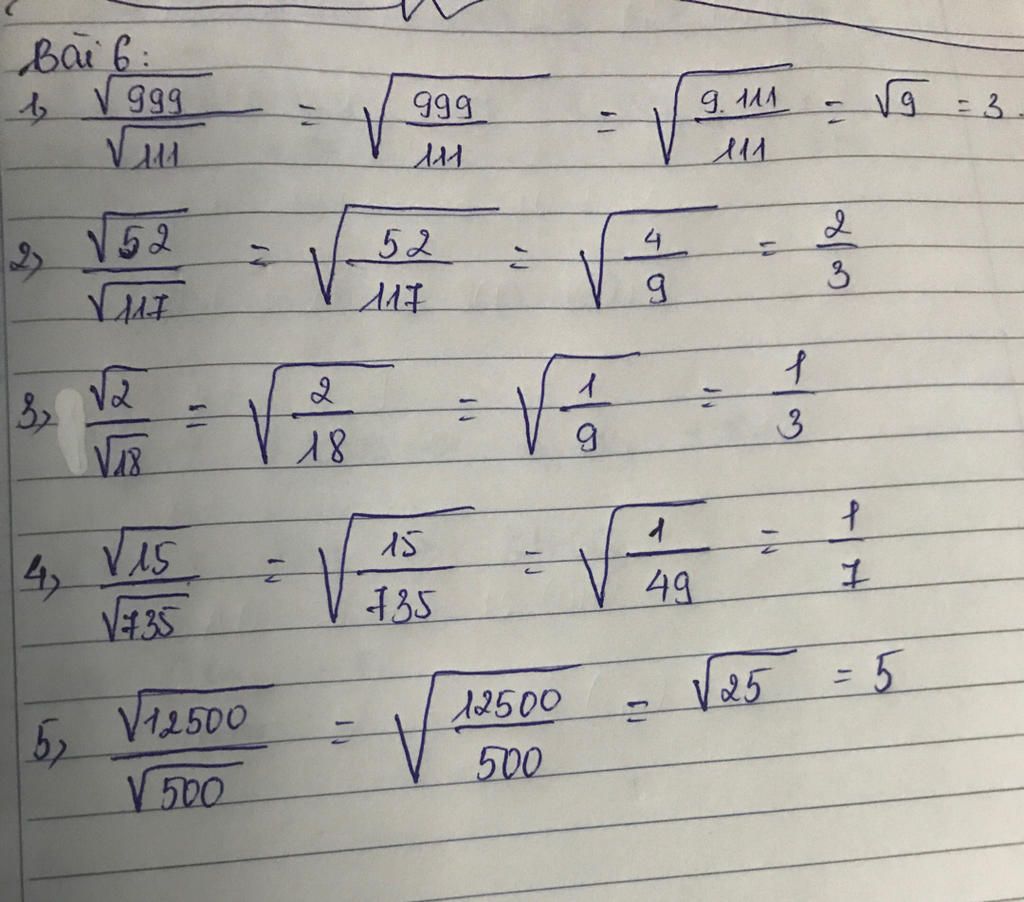 Bài 6:
1, √999/√111 = √(999/111) = √(9.111/111) = √9 = 3.
2, √52/√117 = √(52/117) = √(4/9) = 2/3
3, √2/√18 = √(2/18) = √(1/9) = 1/3
4, √15/√735 = √(15/735) = √(1/49) = 1/7
5, √12500/√500 = √(12500/500) = √25 = 5